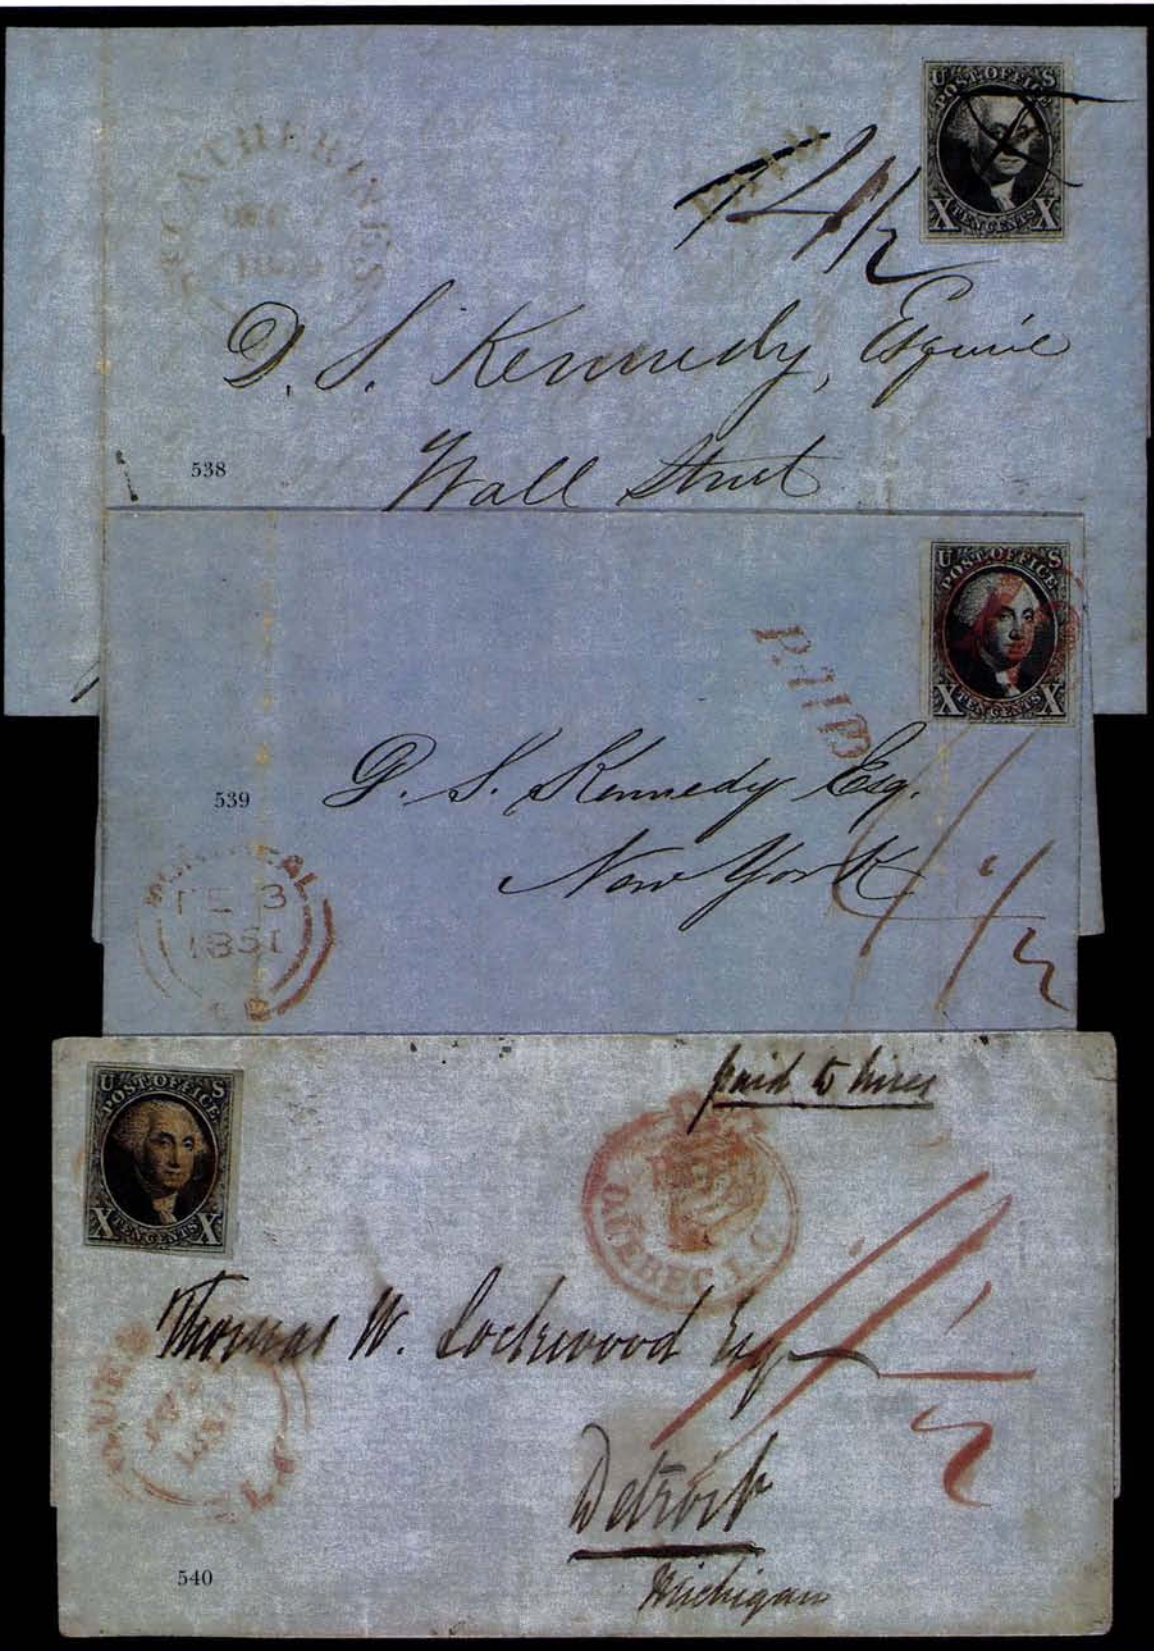 U S
POST OFFICE
X TEN CENTS X
St CATHERINES
DEC 7
PAID
1 4 1/2
D. S. Kennedy, Esquire
Wall Street
538
U S
POST OFFICE
X TEN CENTS X
PAID
D. S. Kennedy Esq.
New York
539
MONTREAL
FE 3
1851
1/2
U S
POST OFFICE
X TEN CENTS X
paid to lines
PAID
QUEBEC L.C.
Thomas W. Lockwood Esq
QUEBEC
1/2
Detroit
Michigan
540